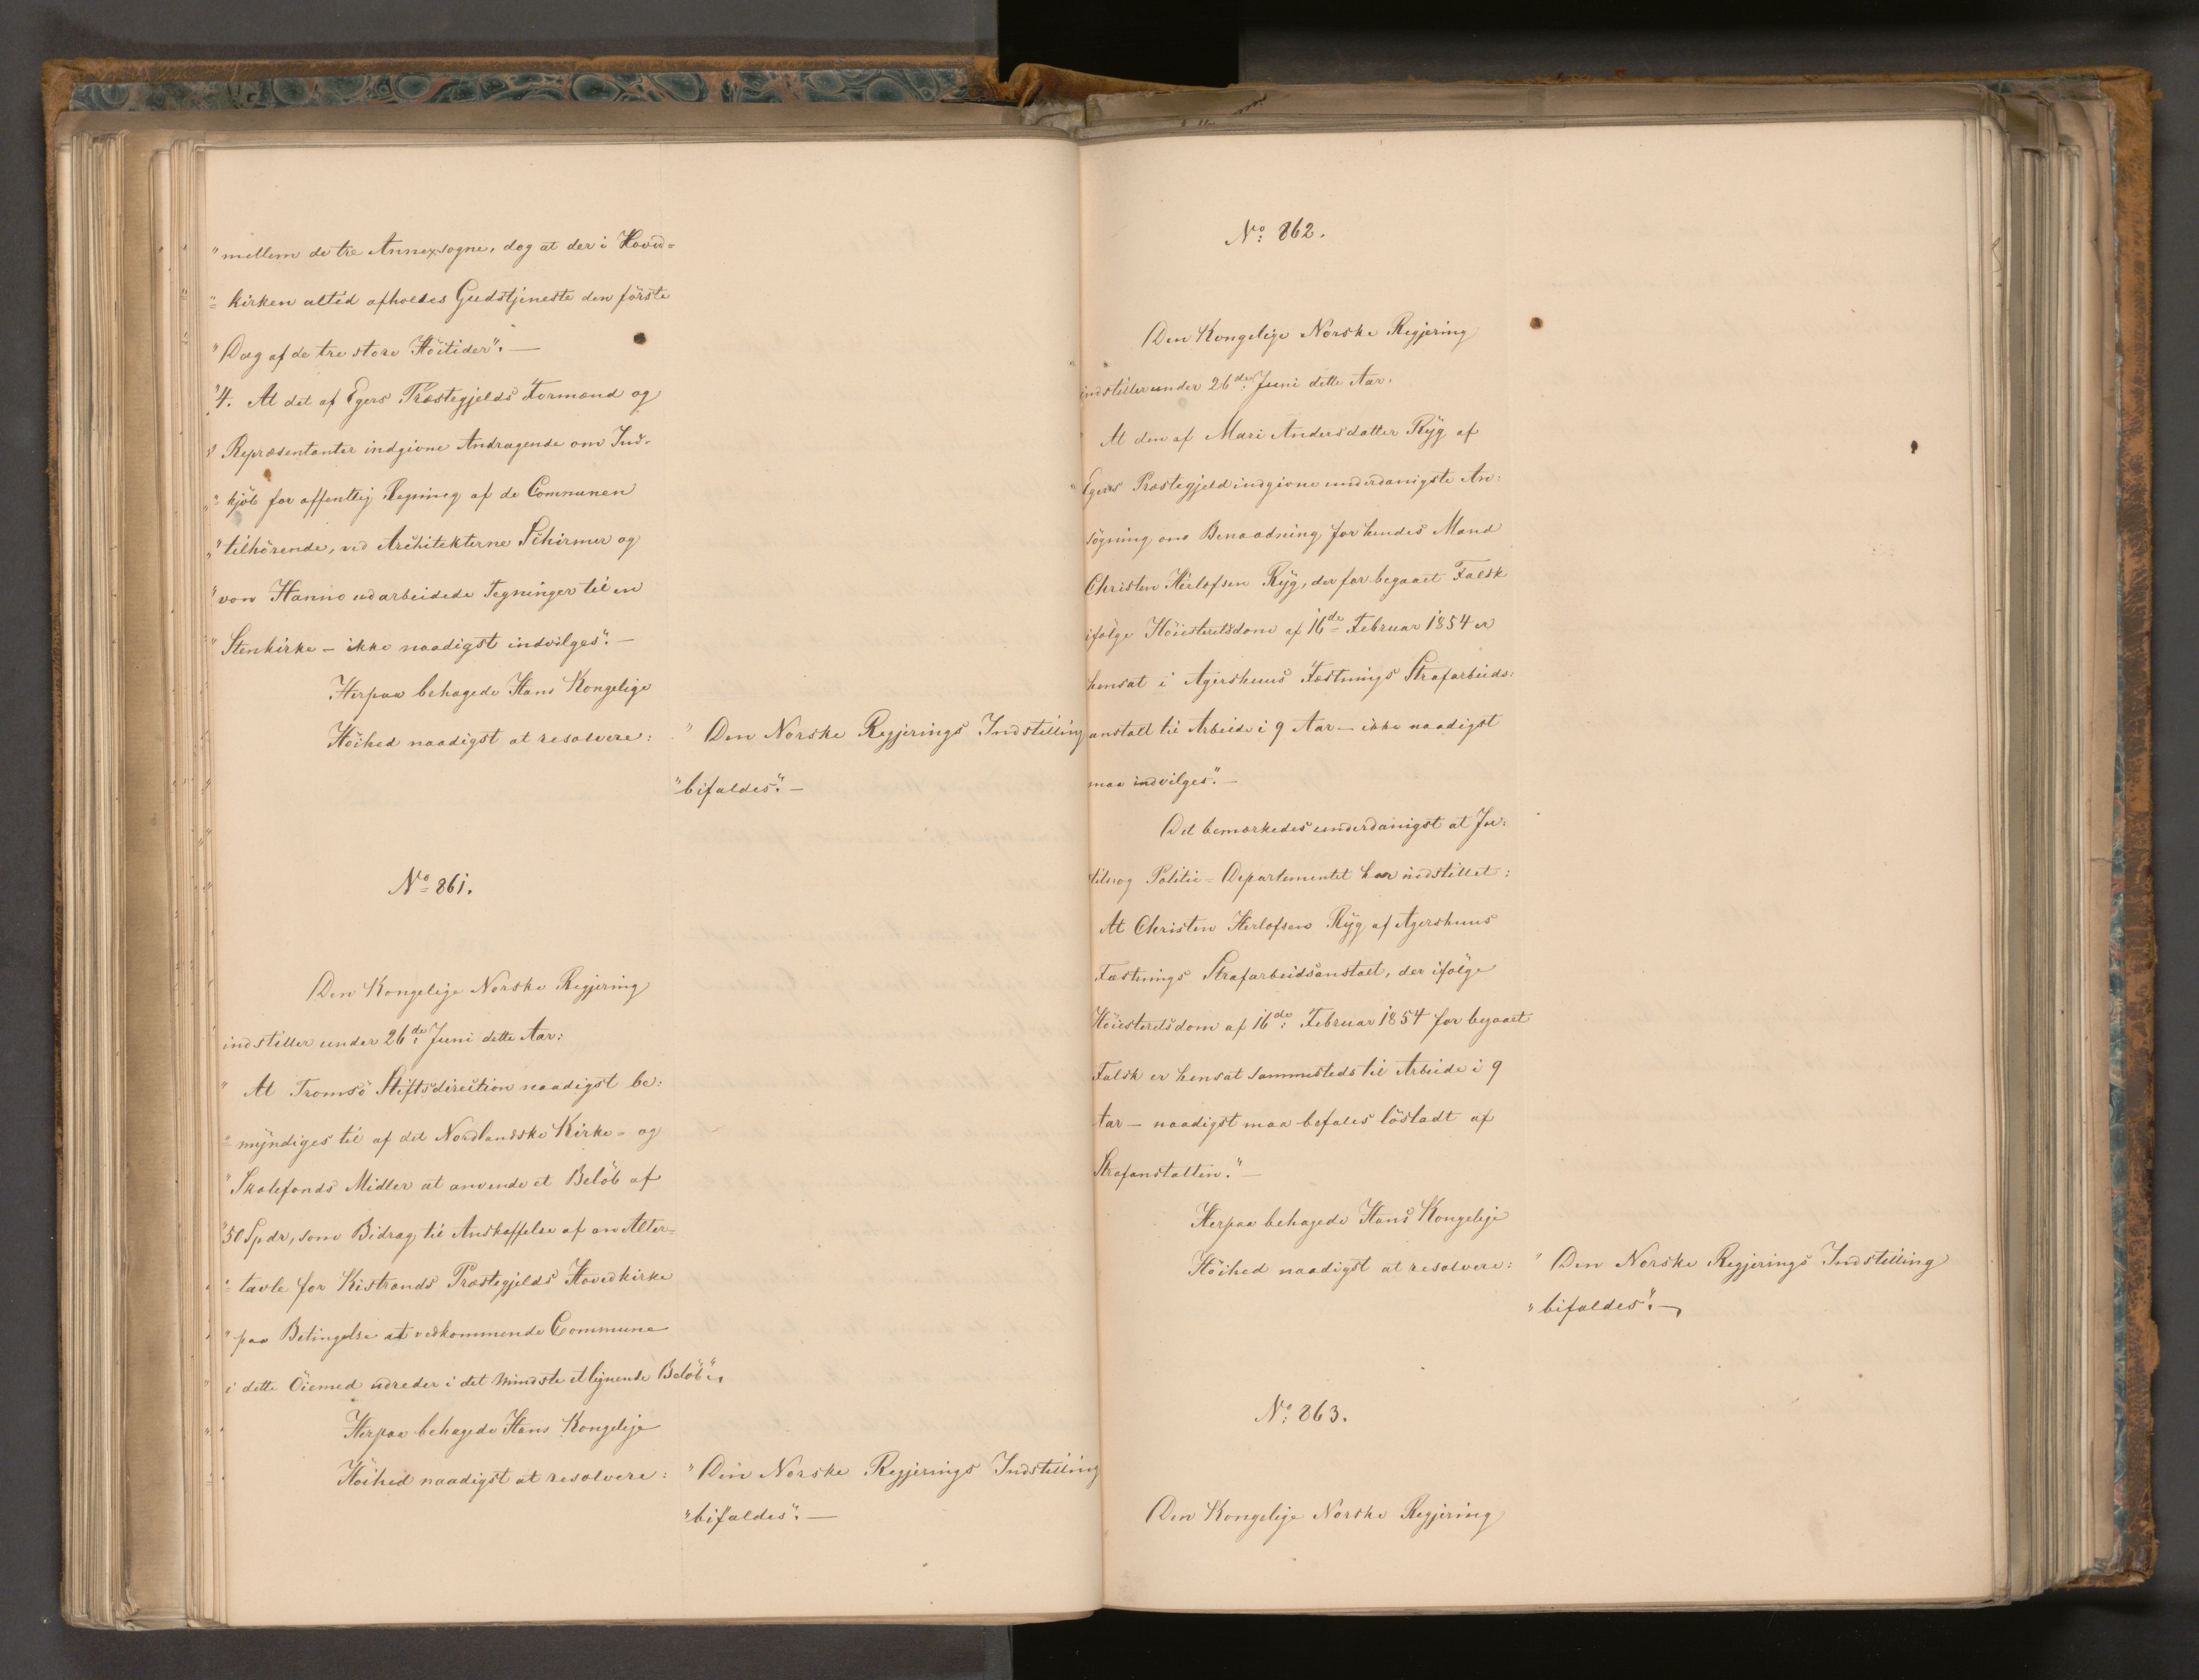 "mellem de tre Annexsogne, dog at der i Hoved=
"kirken altid afholdes Gudstjeneste den förste
"Dag af de tre store Höitider". —
"4. At det af Egers Præstegjelds Formænd og
"Repræsentanter indgivne Andragende om Ind-
"kjöb for offentlig Regning af de Communen
"tilhörende, ved Architekterne Schirmer og
"von Hanno udarbeidede Tegninger til en
"Stenkirke – ikke naadigst indvilges". —
Herpaa behagede Hans Kongelige
Höihed naadigst at resolvere:
"Den Norske Regjerings Indstilling
"bifaldes". —
No 861.
Den Kongelige Norske Regjering
indstiller under 26de Juni dette Aar:
"At Tromsö Stiftsdirection naadigst be:
"myndiges til af det Nordlandske Kirke- og
"Skolefonds Midler at anvende et Belöb af
"50 Spdr, som Bidrag til Anskaffelse af en Alter=
"tavle for Kistrands Præstegjelds Hovedkirke
"paa Betingelse at vedkommende Commune
"i dette Öiemed udreder i det mindste et lignende Belöb".
Herpaa behagede Hans Kongelige
Höihed naadigst at resolvere:
"Den Norske Regjerings Indstilling
"bifaldes". —
No: 862.
Den Kongelige Norske Regjering
indstiller under 26de Juni dette Aar.
At den af Mari Andersdatter Ryg af
Egers Præstegjeld indgivne underdanigste An:
sögning om Benaadning for hendes Mand
Christen Herlofsen Ryg, der for begaaet Falsk
ifölge Höiesteretsdom af 16de Februar 1854 er
hensat i Agershuus Fæstnings Strafarbeids:
anstalt til Arbeide i 9 Aar – ikke naadigst
maa indvilges". —
Det bemærkedes underdanigst at Jus:
tits og Politie-Departementet har indstillet:
At Christen Herlofsen Ryg af Agershuus
Fæstnings Strafarbeidsanstalt, der ifölge
Höiesteretsdom af 16de: Februar 1854 for begaaet
Falsk er hensat sammesteds til Arbeide i 9
Aar – naadigst maa befales lösladt af
Strafanstalten." —
Herpaa behagede Hans Kongelige
Höihed naadigst at resolvere:
"Den Norske Regjerings Indstilling
"bifaldes". —
No: 863.
Den Kongelige Norske Regjering